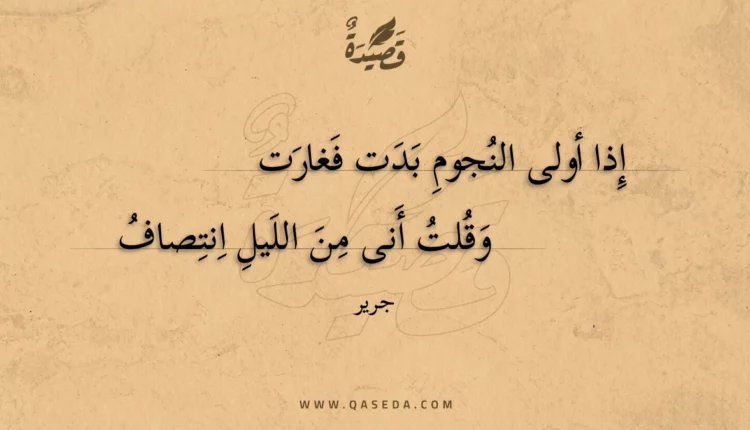 قَصِيدَةٌ
إِذا أولى النُجومِ بَدَت فَغارَت
وَقُلتُ أَنى مِنَ اللَيلِ اِنتِصافُ
جرير
WWW.QASEDA.COM